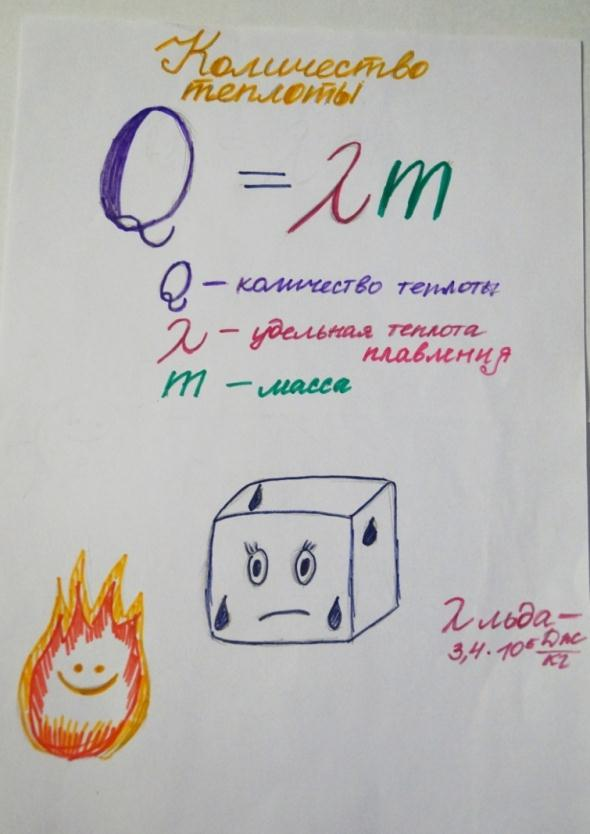 Количество
теплоты
Q = λm
Q – количество теплоты
λ – удельная теплота
плавления
m – масса
λ льда –
3,4 · 10⁵ Дж/кг